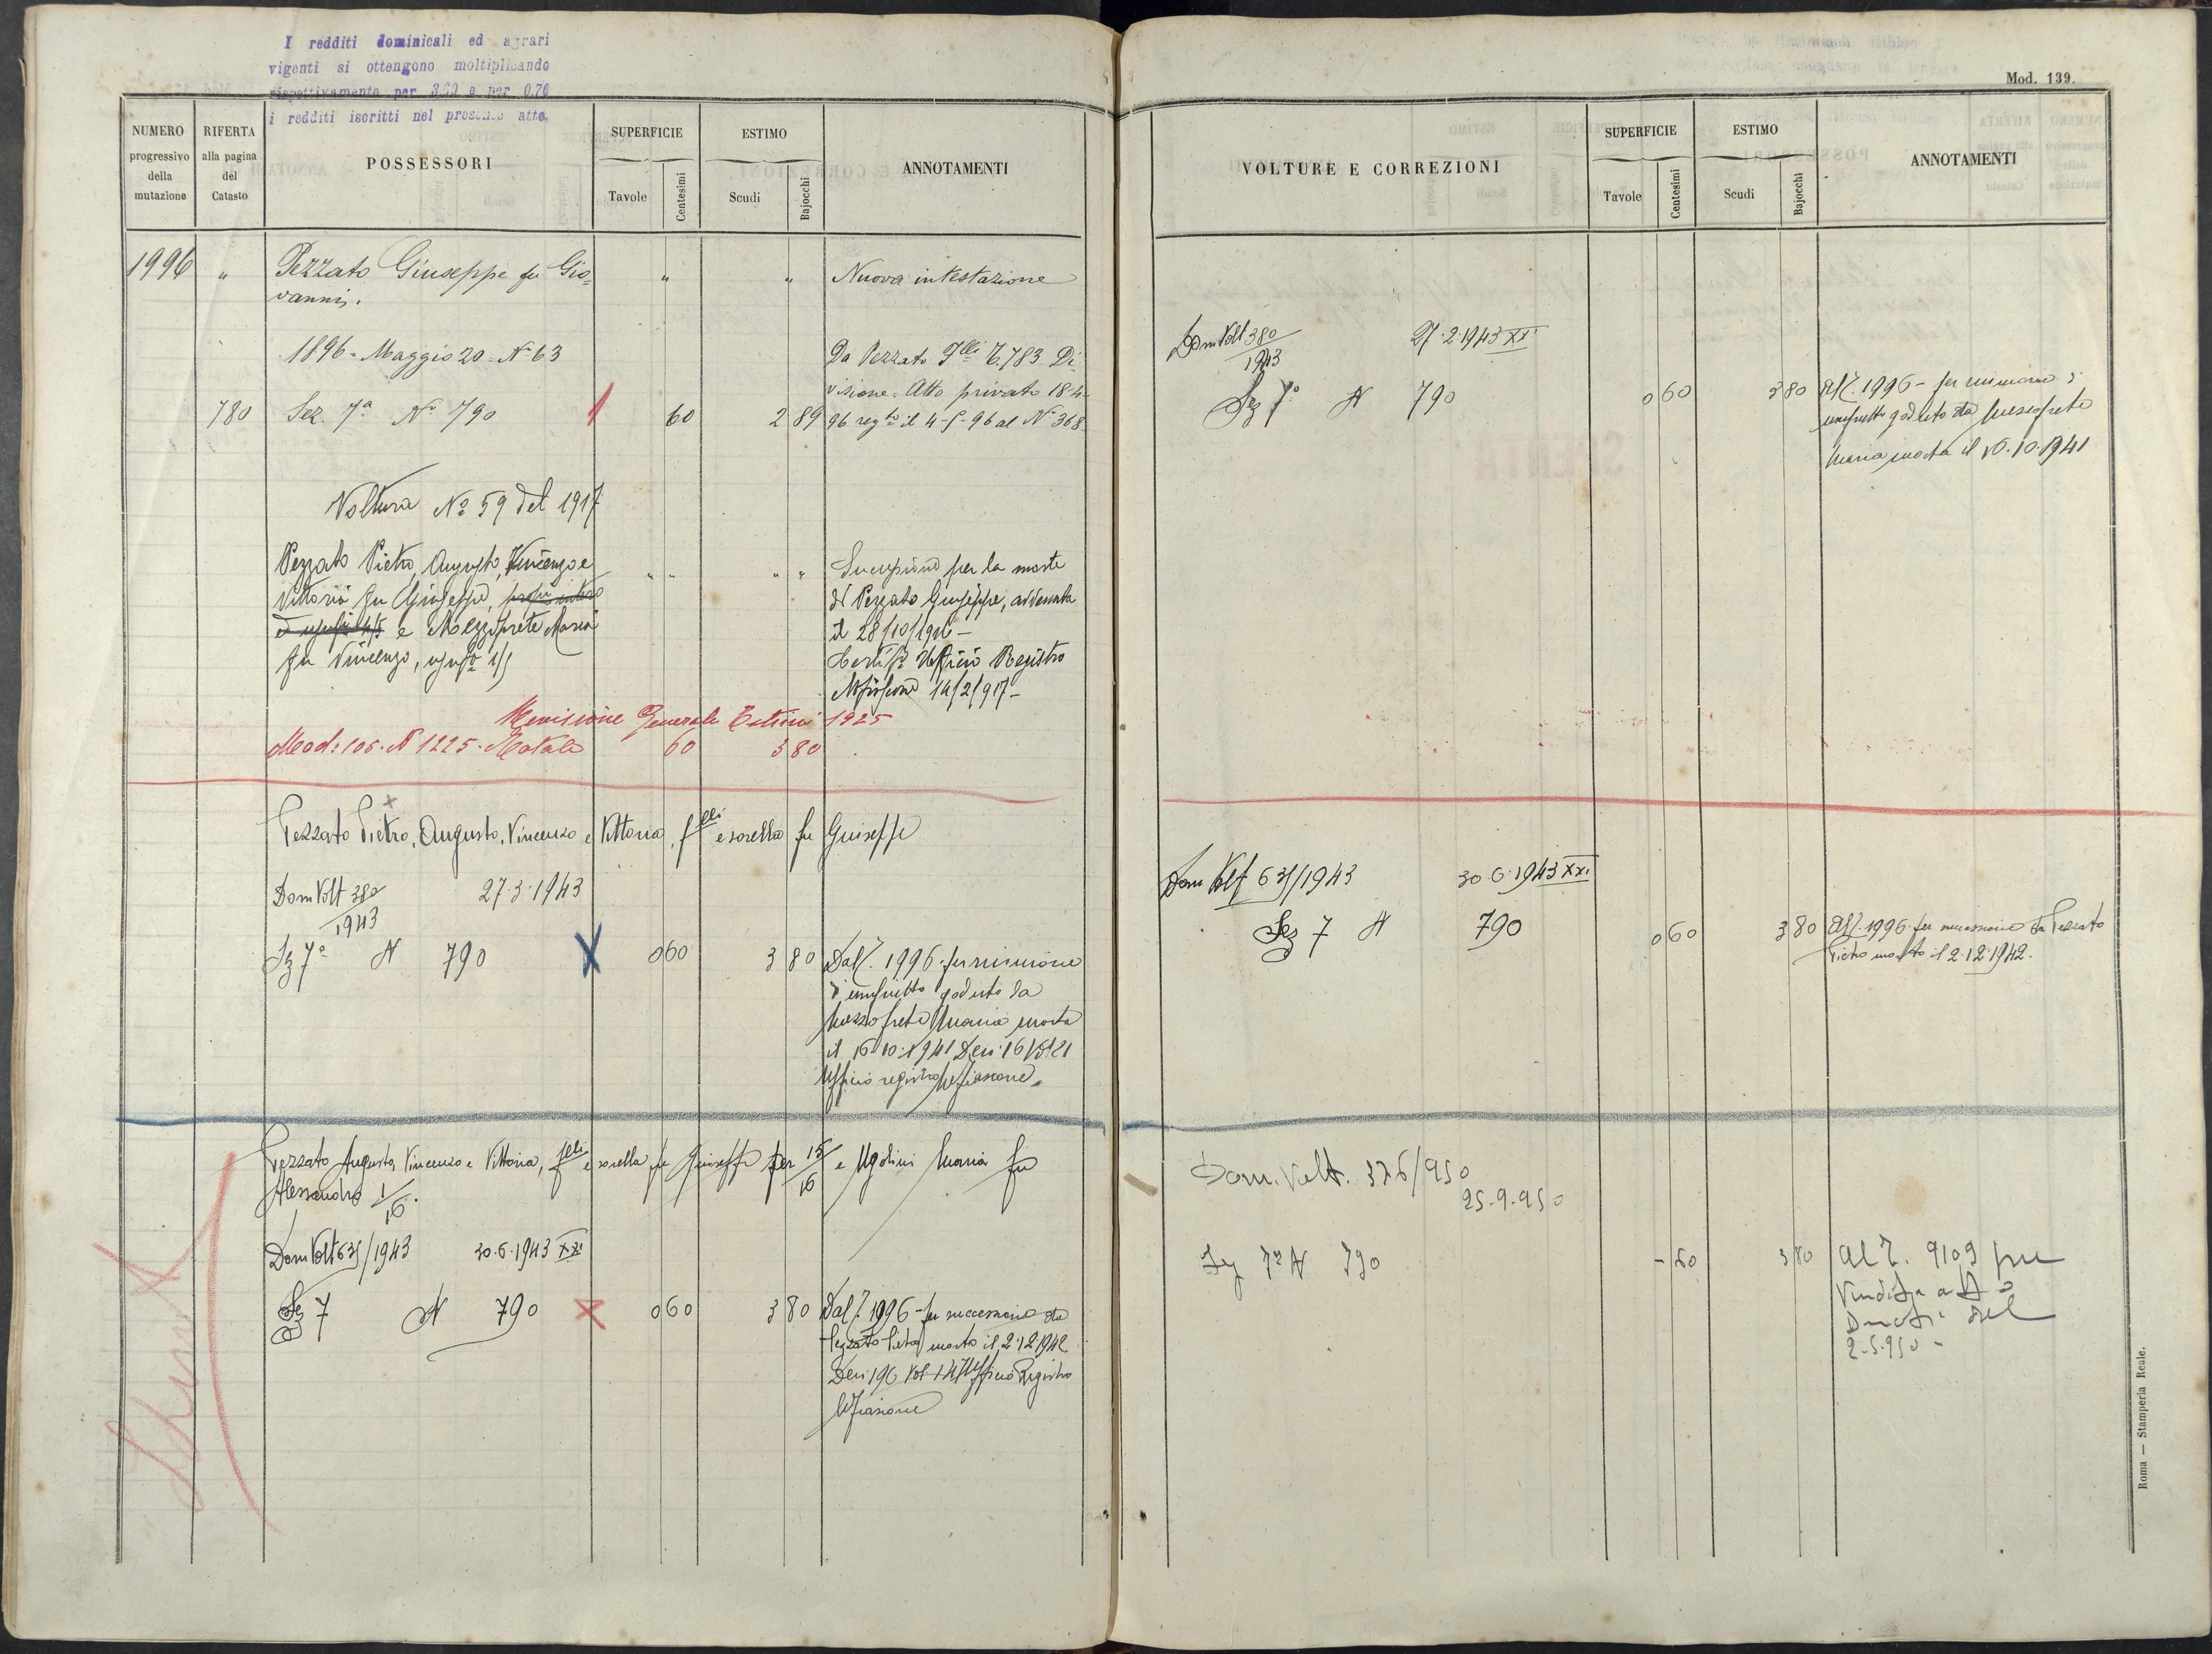 I redditi dominicali ed agrari
vigenti si ottengono moltiplicando
rispettivamente per 3.20 e per 0.70
i redditi iscritti nel presente atto.
NUMERO progressivo della mutazione
RIFERTA alla pagina del Catasto
POSSESSORI
SUPERFICIE
Tavole Centesimi
ESTIMO
Scudi Bajocchi
ANNOTAMENTI
1996 " Pezzato Giuseppe fu Gio= " " Nuova intestazione
vanni.
1896 = Maggio 20 = Nº 63 Da Pezzato Flli T. 783. Di
visione = Atto privato 18-4-
780 Sez. 7ª Nº 790 60 2 89 96 regto il 4-5-96 al Nº 368.
Voltura Nº 59 del 1917
Pezzato Pietro, Augusto, Vincenzo e " " " " Successione per la morte
Vittoria fu Giuseppe, di Pezzato Giuseppe, avvenuta
e Mezzoprete Maria il 28/10/916 –
fu Vincenzo, usufª 1/5 Certifº Ufficio Registro
14/2/917 –
Revisione Generale Estimi 1925
Mod: 105. N 1225. Totale 60 3 80
Pezzato Pietro, Augusto, Vincenzo e Vittoria, flli e sorella fu Giuseppe
Dom Volt 380/1943 27.3.1943
Sez 7ª N 790 X 0 60 3 80 Dal T. 1996 per riunione
d'usufrutto goduto da
Mezzoprete Maria morta
il 16.10.1941 Den. 16 Vol 21
Ufficio registro Mefiascone.
Pezzato Augusto, Vincenzo e Vittoria, flli e sorella fu Giuseppe per 15/16 e Ugolini Maria fu
Alessandro 1/16.
Dom Volt 631/1943 30.6.1943 XXI
Sez 7 N 790 X 0 60 3 80 Dal T. 1996 – per successione da
Pezzato Pietro morto il 2.12.1942
Den 196 Ufficio Registro
Mfiascone
Mod. 139.
VOLTURE E CORREZIONI
SUPERFICIE
Tavole Centesimi
ESTIMO
Scudi Bajocchi
ANNOTAMENTI
Dom Volt 380/1943 27.2.1943 XXI
Sez 7ª N 790 0 60 3 80 Al T. 1996 – per riunione d'
usufrutto goduto da Mezzoprete
Maria morta il 16.10.1941
Dom Volt 631/1943 30.6.1943 XXI
Sez 7 N 790 0 60 3 80 Al T. 1996 per successione da Pezzato
Pietro morto il 2.12.1942.
Dom. Volt. 326/950
25-9-950
Sez 7ª N 790 - 60 3 80 Al T. 9109 per
Vendita
del
2-5-950 -
Roma — Stamperia Reale.